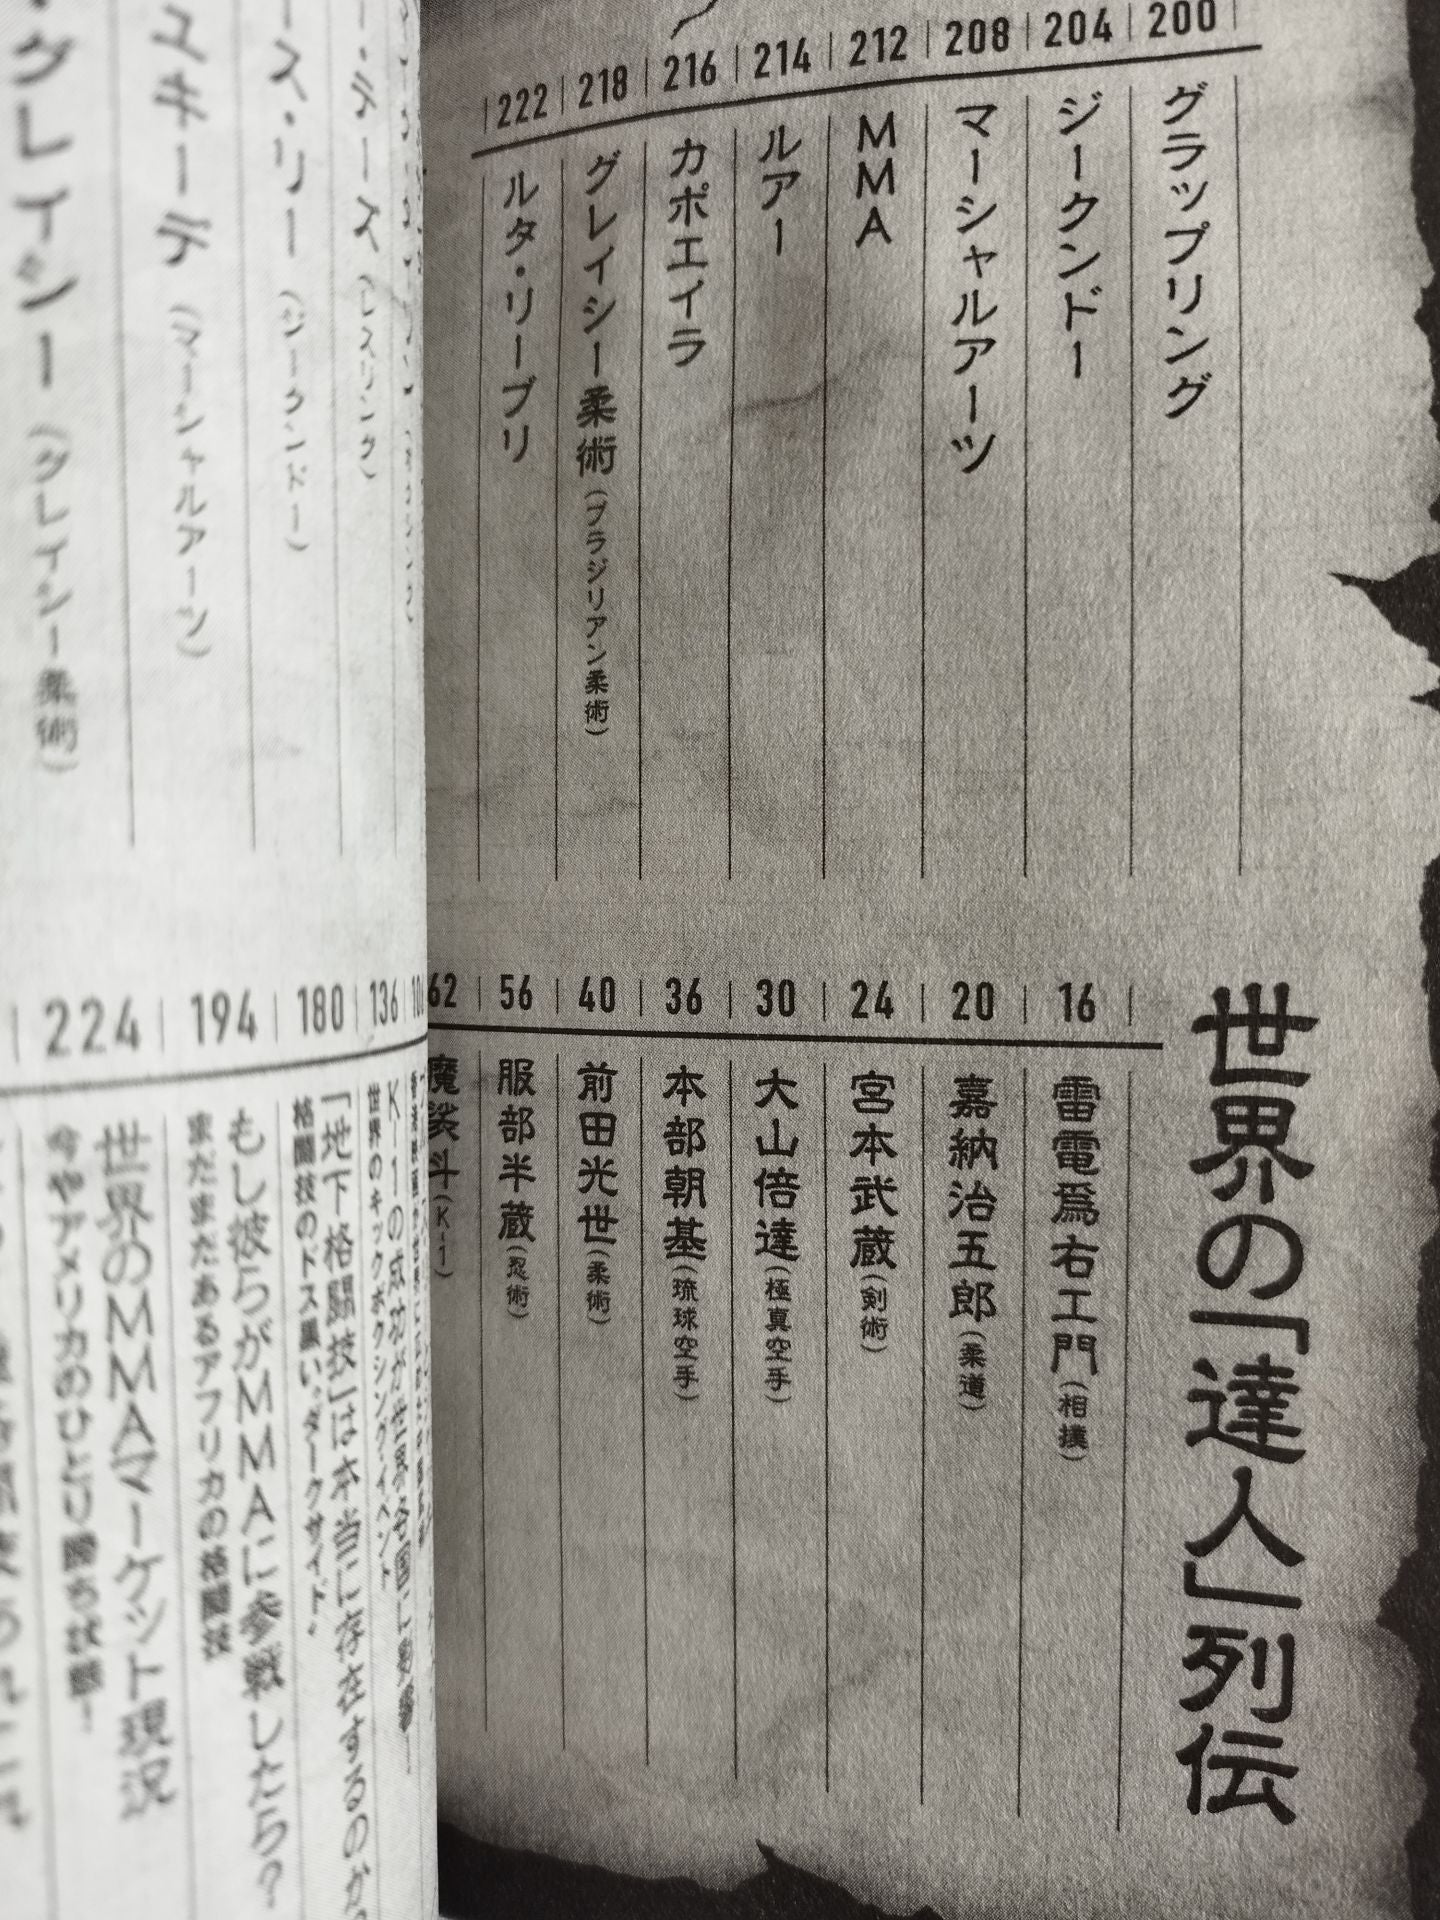 200 グラップリング
204 ジークンドー
208 マーシャルアーツ
212 MMA
214 ルアー
216 カポエイラ
218 グレイシー柔術（ブラジリアン柔術）
222 ルタ・リーブリ
世界の「達人」列伝
16 雷電爲右エ門（相撲）
20 嘉納治五郎（柔道）
24 宮本武蔵（剣術）
30 大山倍達（極真空手）
36 本部朝基（琉球空手）
40 前田光世（柔術）
56 服部半蔵（忍術）
62 魔裟斗（K-1）
・テーズ（レスリング）
ース・リー（ジークンドー）
ユキーデ（マーシャルアーツ）
・グレイシー（グレイシー柔術）
136 K-1の成功が世界各国に影響！
世界のキックボクシングイベント
180 「地下格闘技」は本当に存在するのか？
格闘技のドス黒い“ダークサイド”
194 もし彼らがMMAに参戦したら？
まだまだあるアフリカの格闘技
224 世界のMMAマーケット現況
今やアメリカのひとり勝ち状態！